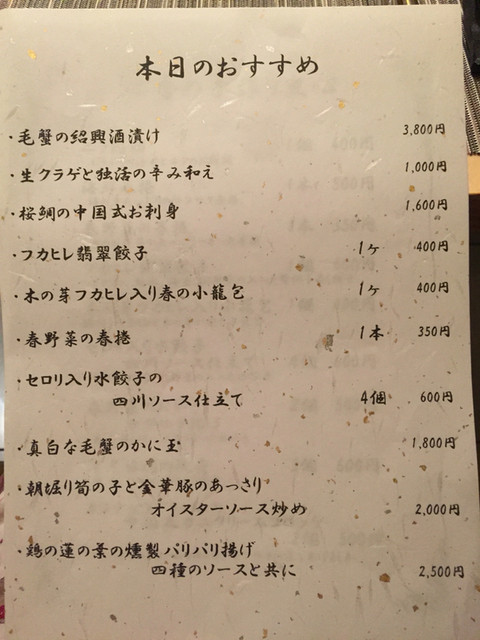 本日のおすすめ
・毛蟹の紹興酒漬け 3,800円
・生クラゲと独活の辛み和え 1,000円
・桜鯛の中国式お刺身 1,600円
・フカヒレ翡翠餃子 1ヶ 400円
・木の芽フカヒレ入り春の小籠包 1ヶ 400円
・春野菜の春捲 1本 350円
・セロリ入り水餃子の
四川ソース仕立て 4個 600円
・真白な毛蟹のかに玉 1,800円
・朝堀り筍の子と金華豚のあっさり
オイスターソース炒め 2,000円
・鶏の蓮の葉の燻製パリパリ揚げ
四種のソースと共に 2,500円